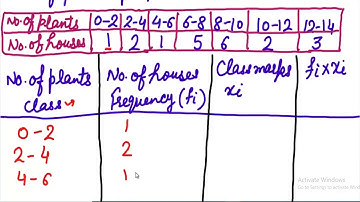 No. of plants 0-2 2-4 4-6 6-8 8-10 10-12 12-14
No. of houses 1 2 1 5 6 2 3
No. of plants No. of houses Class marks fi×xi
class frequency (fi) xi
0-2 1
2-4 2
4-6 1
Activate Windows
Go to Settings to activate Windows